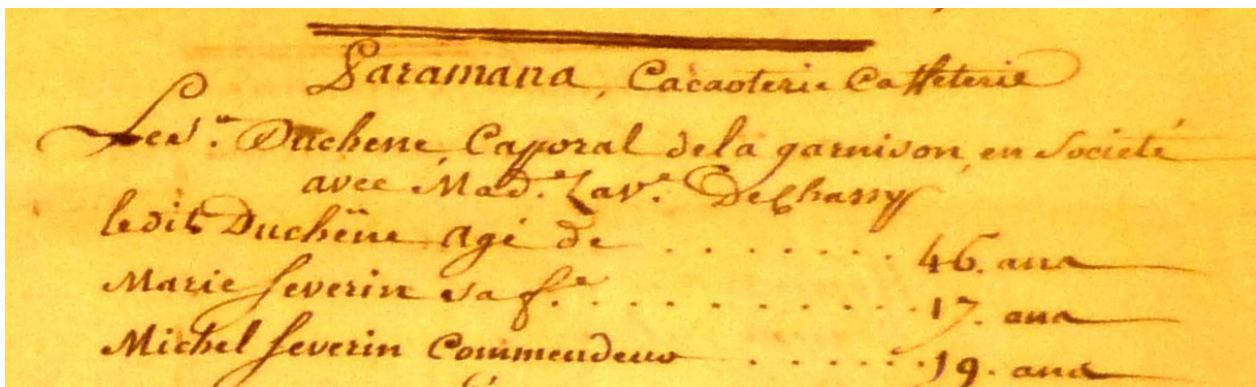 Paramana, Cacaoterie Caffeterie
Le Sr. Duchene, Caporal de la garnison, en Societé
avec Mad.e Lav.e DeChassy
ledit Duchëne agé de . . . . . . . . 46. ans
Marie Severin sa f.e . . . . . . . . . . . 17. ans
Michel Severin Commendeur . . . . . . 19. ans